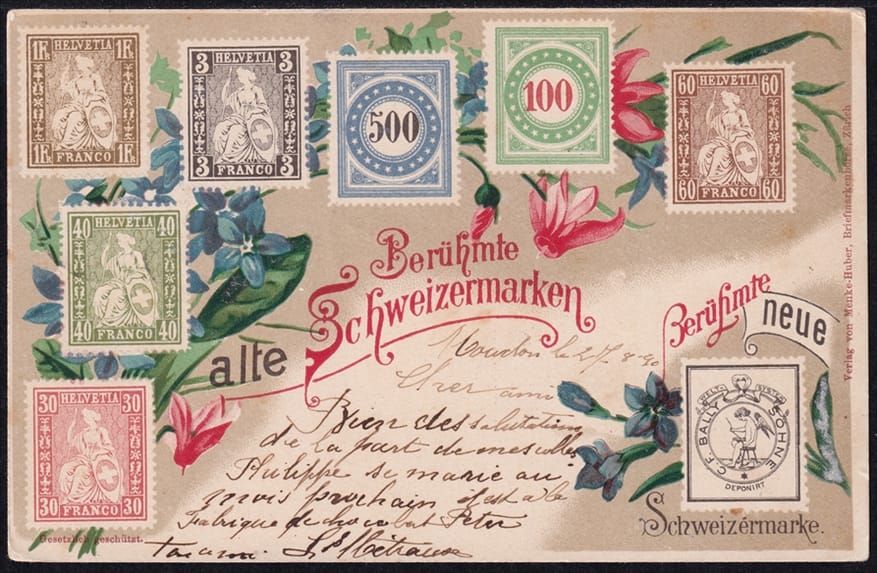 1 FR HELVETIA 1 FR
1 FR FRANCO 1 FR
3 HELVETIA 3
3 FRANCO 3
500
100
60 HELVETIA 60
60 FRANCO 60
40 HELVETIA 40
40 FRANCO 40
30 HELVETIA 30
30 FRANCO 30
alte
Berühmte
Schweizermarken
Berühmte
neue
WELT-SYSTEM
C.F. BALLY SÖHNE
DEPONIRT
Schweizermarke.
Moudon le
Cher ami
Bien des salutations
de la part de mes
Philippe se marie au
mois prochain est à la
Fabrique de chocolat Peter
Gesetzlich geschützt.
Verlag von Menke-Huber, Briefmarkenbörse, Zürich